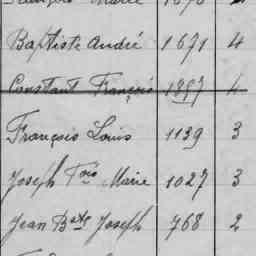 François Marie 1078 2
Baptiste André 1671 4
Constant François 1857 4
François Louis 1139 3
Joseph Fois Marie 1027 3
Jean Bste Joseph 768 2